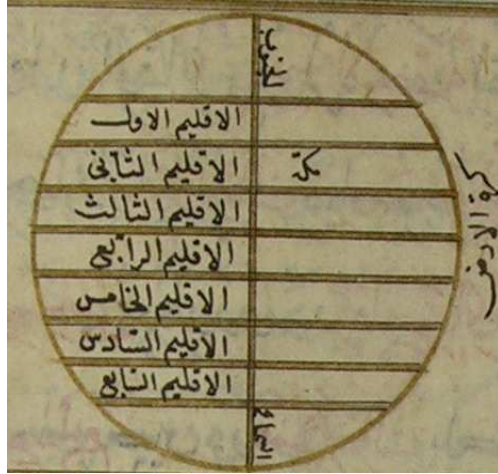 الجنوب
الاقليم الاول
مكة
الاقليم الثانى
الاقليم الثالث
الاقليم الرابع
الاقليم الخامس
الاقليم السادس
الاقليم السابع
كرة الارض